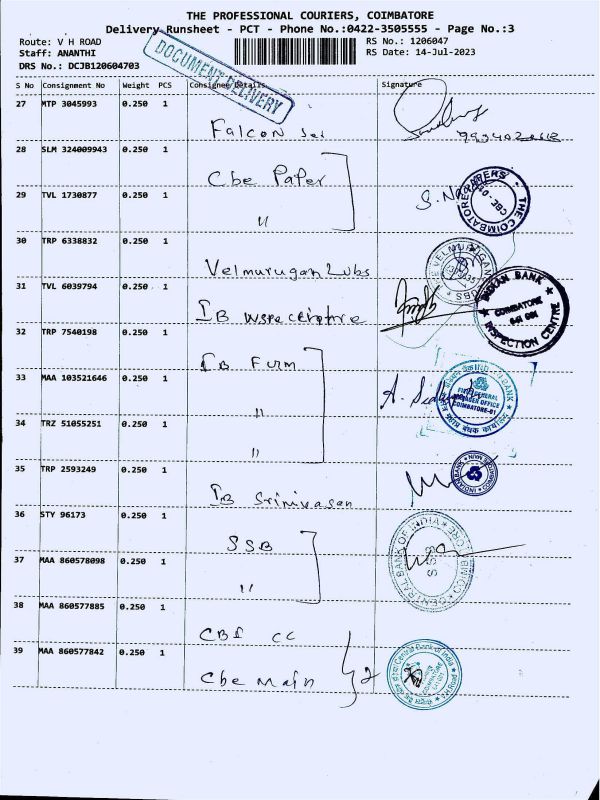 THE PROFESSIONAL COURIERS, COIMBATORE
Delivery Runsheet - PCT - Phone No.:0422-3505555 - Page No.:3
Route: V H ROAD
RS No.: 1206047
Staff: ANANTHI
RS Date: 14-Jul-2023
DRS No.: DCJB120604703
DOCUMENT DELIVERY
S No Consignment No Weight PCS Consignee Details Signature
27 MTP 3045993 0.250 1
Falcon
28 SLM 324009943 0.250 1
Cbe Paper
29 TVL 1730877 0.250 1
"
THE COIMBATORE PAPERS
30 TRP 6338832 0.250 1
Velmurugan Lubs
31 TVL 6039794 0.250 1
INDIAN BANK
COIMBATORE
INSPECTION CENTRE
IB
32 TRP 7540198 0.250 1
IB FGM
33 MAA 103521646 0.250 1
"
INDIAN BANK
FIELD GENERAL
MANAGER OFFICE
COIMBATORE-01
34 TRZ 51055251 0.250 1
"
35 TRP 2593249 0.250 1
IB Srinivasan
36 STY 96173 0.250 1
SSB
CENTRAL BANK OF INDIA
37 MAA 860578098 0.250 1
"
38 MAA 860577885 0.250 1
CBI CC
39 MAA 860577842 0.250 1
Cbe Main
2
Central Bank of India